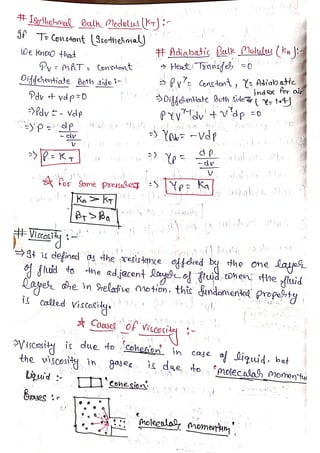 # Isothermal Bulk Modulus (KT) :-
If T → Constant (Isothermal)
We know that
PV = MRT = Constant
Differentiate Both side :-
Pdv + vdp = 0
⇒ Pdv = - vdp
⇒ P = dp / (-dv/v)
⇒ P = KT
# Adiabatic Bulk Modulus (Ka) :-
→ Heat Transfer = 0
⇒ PVγ = Constant, γ = Adiabatic
index For air
⇒ Differentiate Both sides (γ = 1.4)
PγVγ-1dv + Vγdp = 0
⇒ γPdv = -Vdp
⇒ γP = dp / (-dv/v)
⇒ γP = Ka
* For same pressure
Ka > KT
βT > βa
# Viscosity :-
⇒ It is defined as the resistance offered by the one layer
of fluid to the adjacent layer of fluid when the fluid
layer are in relative motion. this fundamental property
is called viscosity.
* Causes of viscosity :-
⇒ Viscosity is due to 'cohesion' in case of liquid. but
the viscosity in gases is due to 'molecular momentum
liquid :-
'Cohesion'
Gases :-
'molecular momentum'